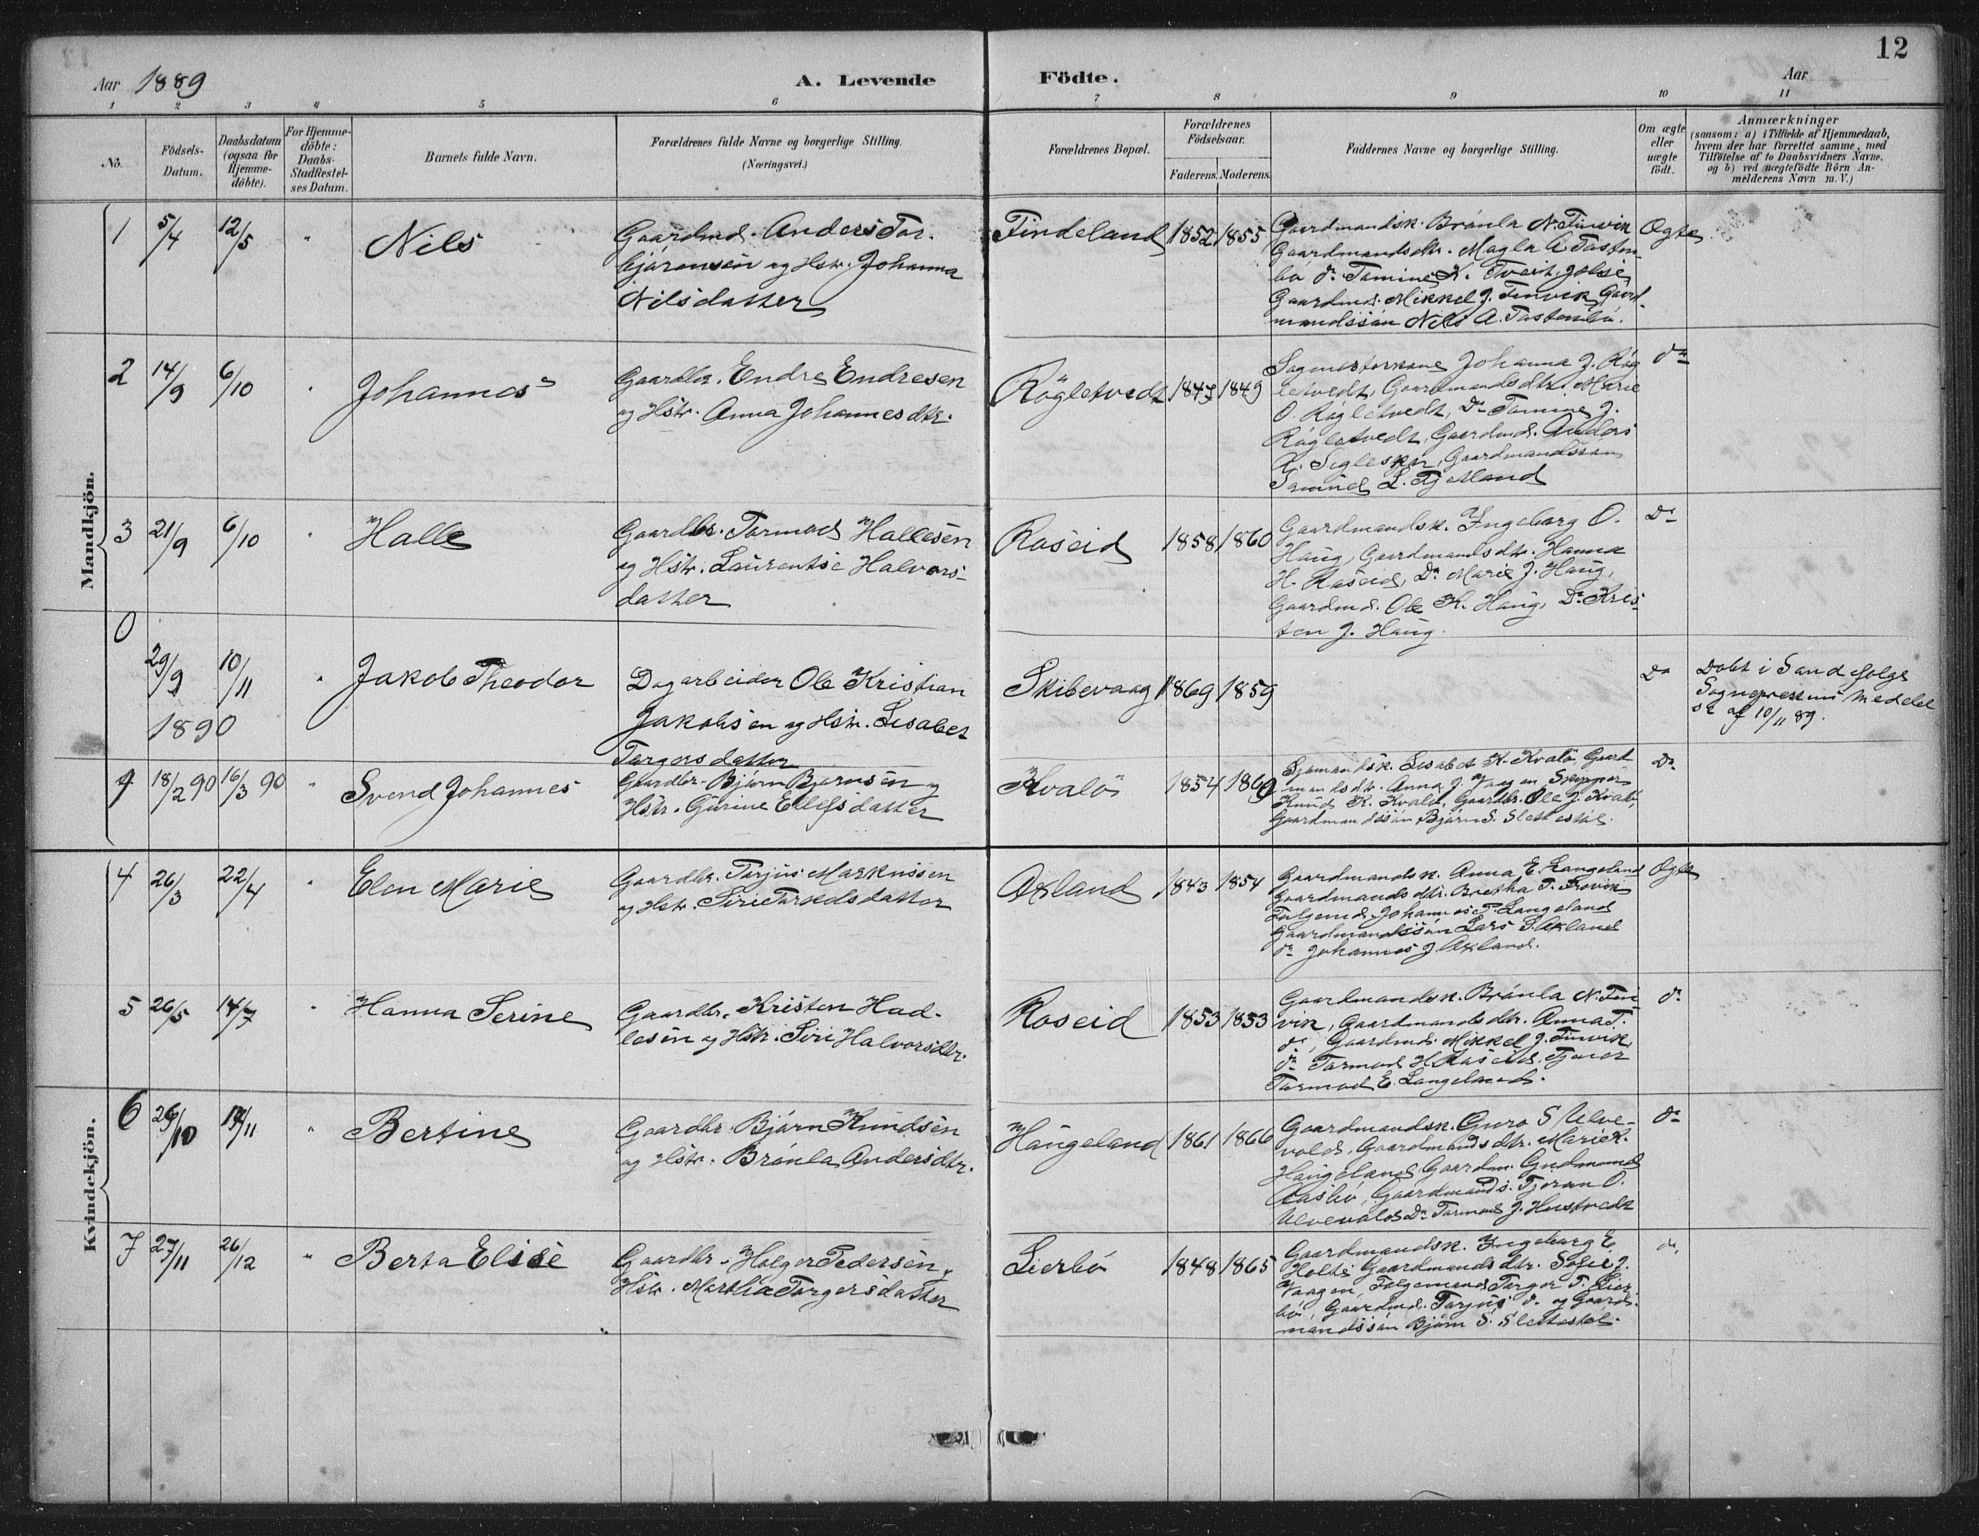 12
Aar 1889 A. Levende Födte. Aar
1 2 3 4 5 6 7 8 9 10 11
No.
Födsels-
Datum.
Daabsdatum
(ogsaa for
Hjemme-
döbte).
For Hjemme-
döbte:
Daabs-
Stadfæstel-
ses Datum.
Barnets fulde Navn.
Forældrenes fulde Navne og borgerlige Stilling.
(Næringsvei.)
Forældrenes Bopæl.
Forældrenes
Födselsaar.
Faderens. Moderens.
Faddernes Navne og borgerlige Stilling.
Om ægte
eller
uægte
födt.
Anmærkninger
(saasom: a) i Tilfælde af Hjemmedaab,
hvem der har forrettet samme, med
Tilföielse af to Daabsvidners Navne,
og b) ved uægtefödte Börn An-
melderens Navn m. V.)
Mandkjön.
1 5/4 12/5 " Nils
Gaardmd. Anders Tor-
bjørensen og Hstr. Johanna
Nilsdatter
Findeland 1852 1855
Gaardmandsk. Brønla N. Finvik
Gaardmandsdtr. Magla A. Tasten-
bø do Tomine K. Tveit,
Gaardmd. Mikkel J. Finvik, Gaard-
mandssøn Nils A. Tastenbø.
Ægte
2 14/9 6/10 " Johannes
Gaardbr. Endre Endresen
og Hstr. Anna Johannesdtr.
Røgletvedt 1847 1849
Johanna J. Røg-
letvedt, Gaardmandsdtr. Marie
O. Røgletvedt, Do Tomine J.
Røgletvedt, Gaardmd. Anders
Gaardmandssøn
Samuel L. Fjelland
do
3 21/9 6/10 " Halle
Gaardbr. Tormod Hallesen
og Hstr. Laurentse Halvors-
datter
Roseid 1858 1860
Gaardmandsk. Ingeborg O.
Haug, Gaardmandsdtr. Hanna
H. Raseid, Do Marie J. Haug,
Gaardmd. Ole K. Haug, Do Kris-
ten J. Haug.
Do
0
29/9 10/11 " Jakob Theodor
Dagarbeider Ole Kristian
Jakobsen og Hstr. Lisabet
Torgersdatter
Skibevaag 1869 1859
Do
Døbt i Sand følge
Sognepræstens Meddel
se af 10/11 89.
1890
4 18/2 90 16/3 90 " Svend Johannes
Gaardbr. Bjørn Bjørnsen og
Hstr. Gurine Ellefsdatter
Kvalø 1854 1860
Sømandsk. Lisabet K. Kvalø, Gaard
mandsdtr. Anna J. Vaagen, Skipper
Knud K. Kvalø, Gaardbr. Ole J. Kvalø,
Gaardmandssøn Bjørn S. Slettestøl.
Do
Kvindekjön.
4 26/3 22/4 " Elen Marie
Gaardbr. Torjus Markussen
og Hstr. Siri Torkelsdatter
Øxland 1843 1854
Gaardmandsk. Anna E. Langeland
Gaardmandsdtr. Bertha T. Frøvik
Folgemd. Johannes T. Langeland
Gaardmandssøn Lars S. Øxland
do Johannes J. Øxland.
Ægte
5 26/5 14/7 " Hanna Serine
Gaardbr. Kristen Had-
lesen og Hstr. Siri Halvorsdtr.
Roseid 1853 1853
Gaardmandsk. Brønla N. Fin-
vik, Gaardmandsdtr. Anna T.
do, Gaardmd. Mikkel J. Finvik,
do Tormod H. Raseid, Tjener
Tormod E. Langeland.
do
6 26/10 17/11 " Bertine
Gaardbr. Bjørn Knudsen
og Hstr. Brønla Andersdtr.
Haugeland 1861 1866
Gaardmandsk. Guro S. Ulve-
vold, Gaardmandsdtr. Marie K.
Haugeland, Gaardm. Gudmund
Aasbø, Gaardmands. Tjøran O.
Ulvevold Do Tormod J. Hustvedt
do
7 27/11 26/12 " Berta Elise
Gaardbr. Holger Pedersen,
Hstr. Martha Torgersdatter
Lierbø 1848 1865
Gaardmandsk. Ingeborg E.
Holte Gaardmandsdtr. Sofie J.
Vaagen, Folgemand Torger T. Lier-
bø, Gaardmd. Torjus do og Gaard-
mandssøn Bjørn S. Slettestøl.
do